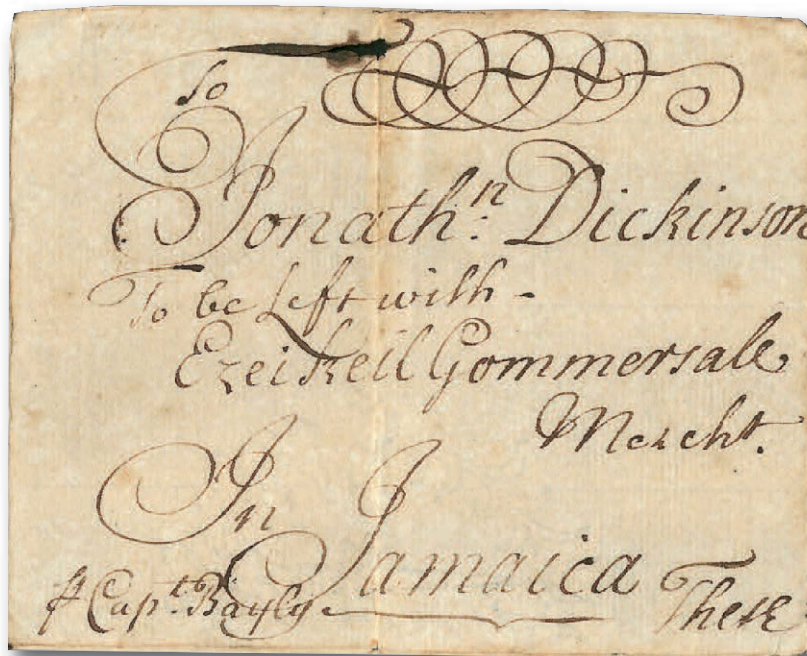 To
Jonathn: Dickinson
To be Left with -
Ezeikeil Gommersale
Mercht.
In Jamaica
℔ Capt. Bayly These